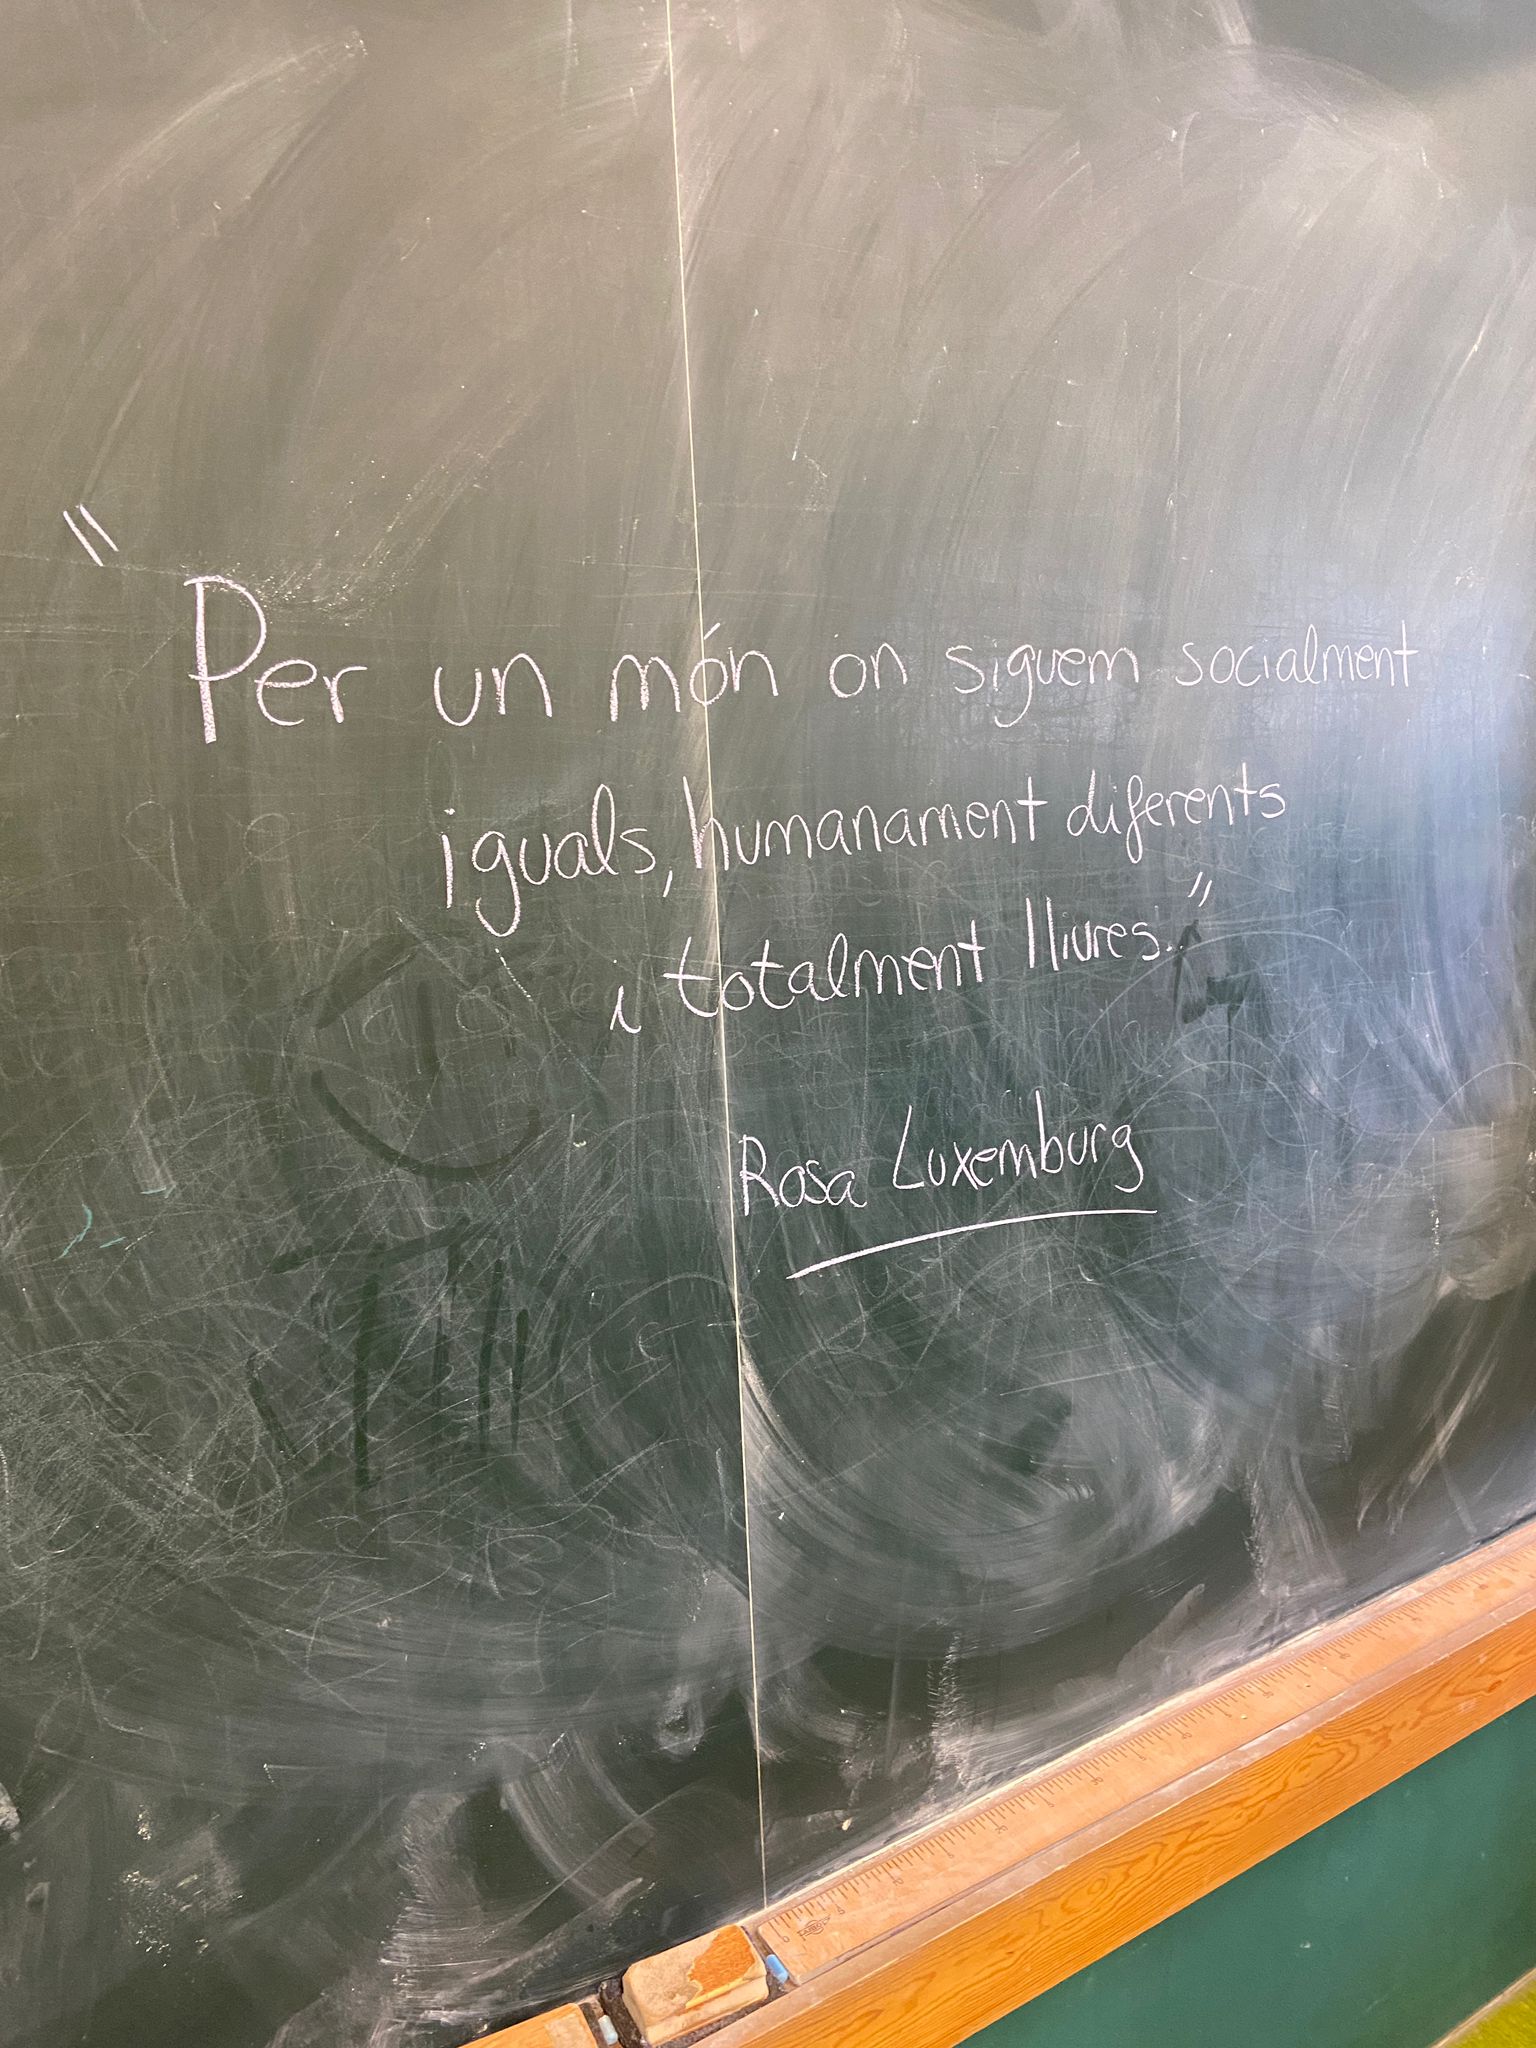 "Per un món on siguem socialment
iguals, humanament diferents
i totalment lliures."
Rosa Luxemburg